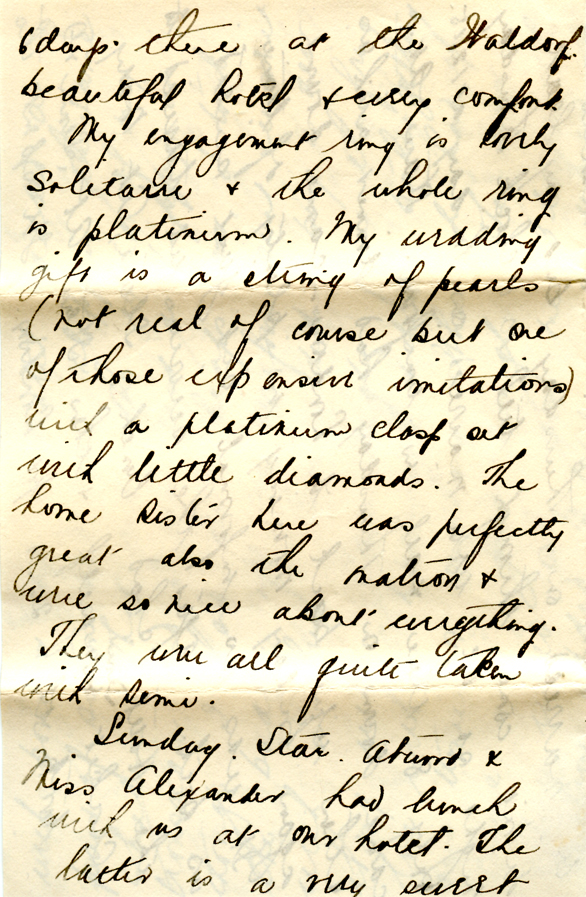 6 days there at the Waldorf.
beautiful hotel & every comfort.
My engagement ring is lovely
solitaire & the whole ring
is platinum. My wedding
gift is a string of pearls
(not real of course but one
of those expensive imitations)
with a platinum clasp set
with little diamonds. The
home sister here was perfectly
great also the matron &
were so nice about everything.
They were all quite taken
with
Sunday. Star. &
Miss Alexander had lunch
with us at our hotel. The
latter is a very sweet